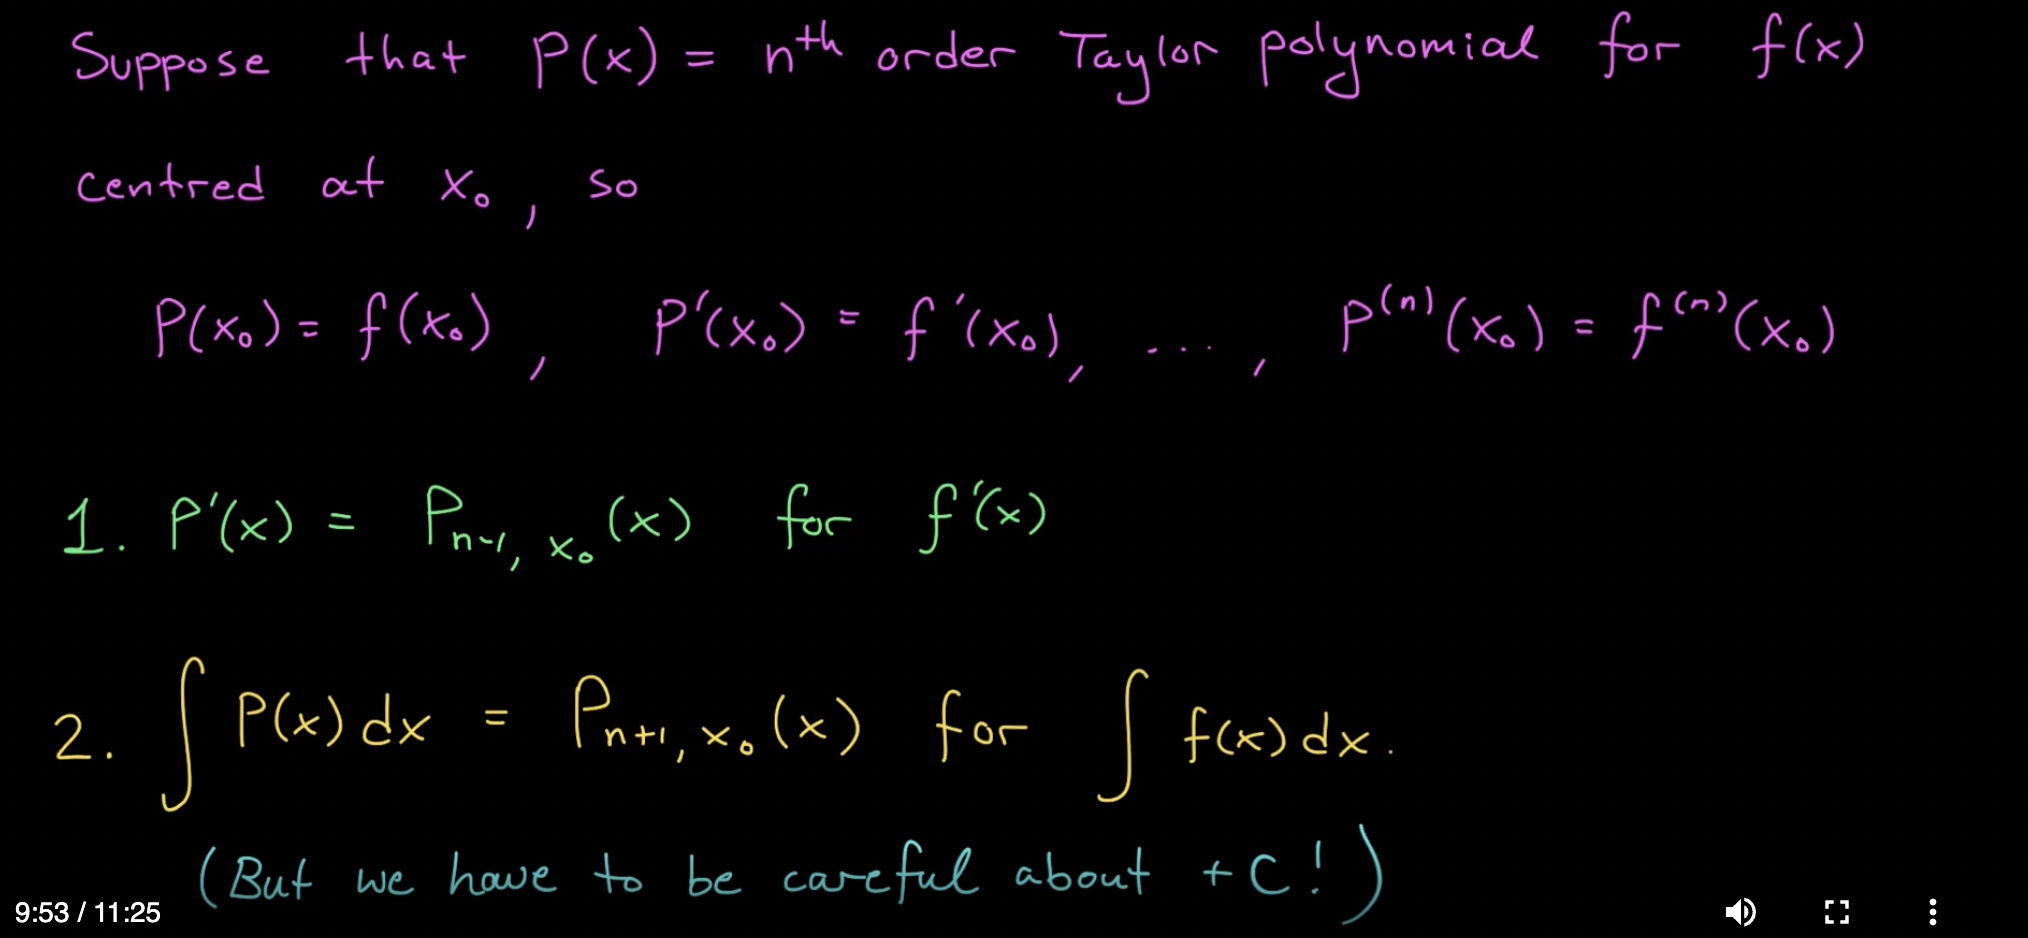 Suppose that P(x) = nᵗʰ order Taylor polynomial for f(x)
centred at x₀, so
P(x₀) = f(x₀), P'(x₀) = f'(x₀), ..., P⁽ⁿ⁾(x₀) = f⁽ⁿ⁾(x₀)
1. P'(x) = Pₙ₋₁, ₓ₀(x) for f'(x)
2. ∫ P(x) dx = Pₙ₊₁, ₓ₀(x) for ∫ f(x) dx.
(But we have to be careful about + C!)
9:53 / 11:25